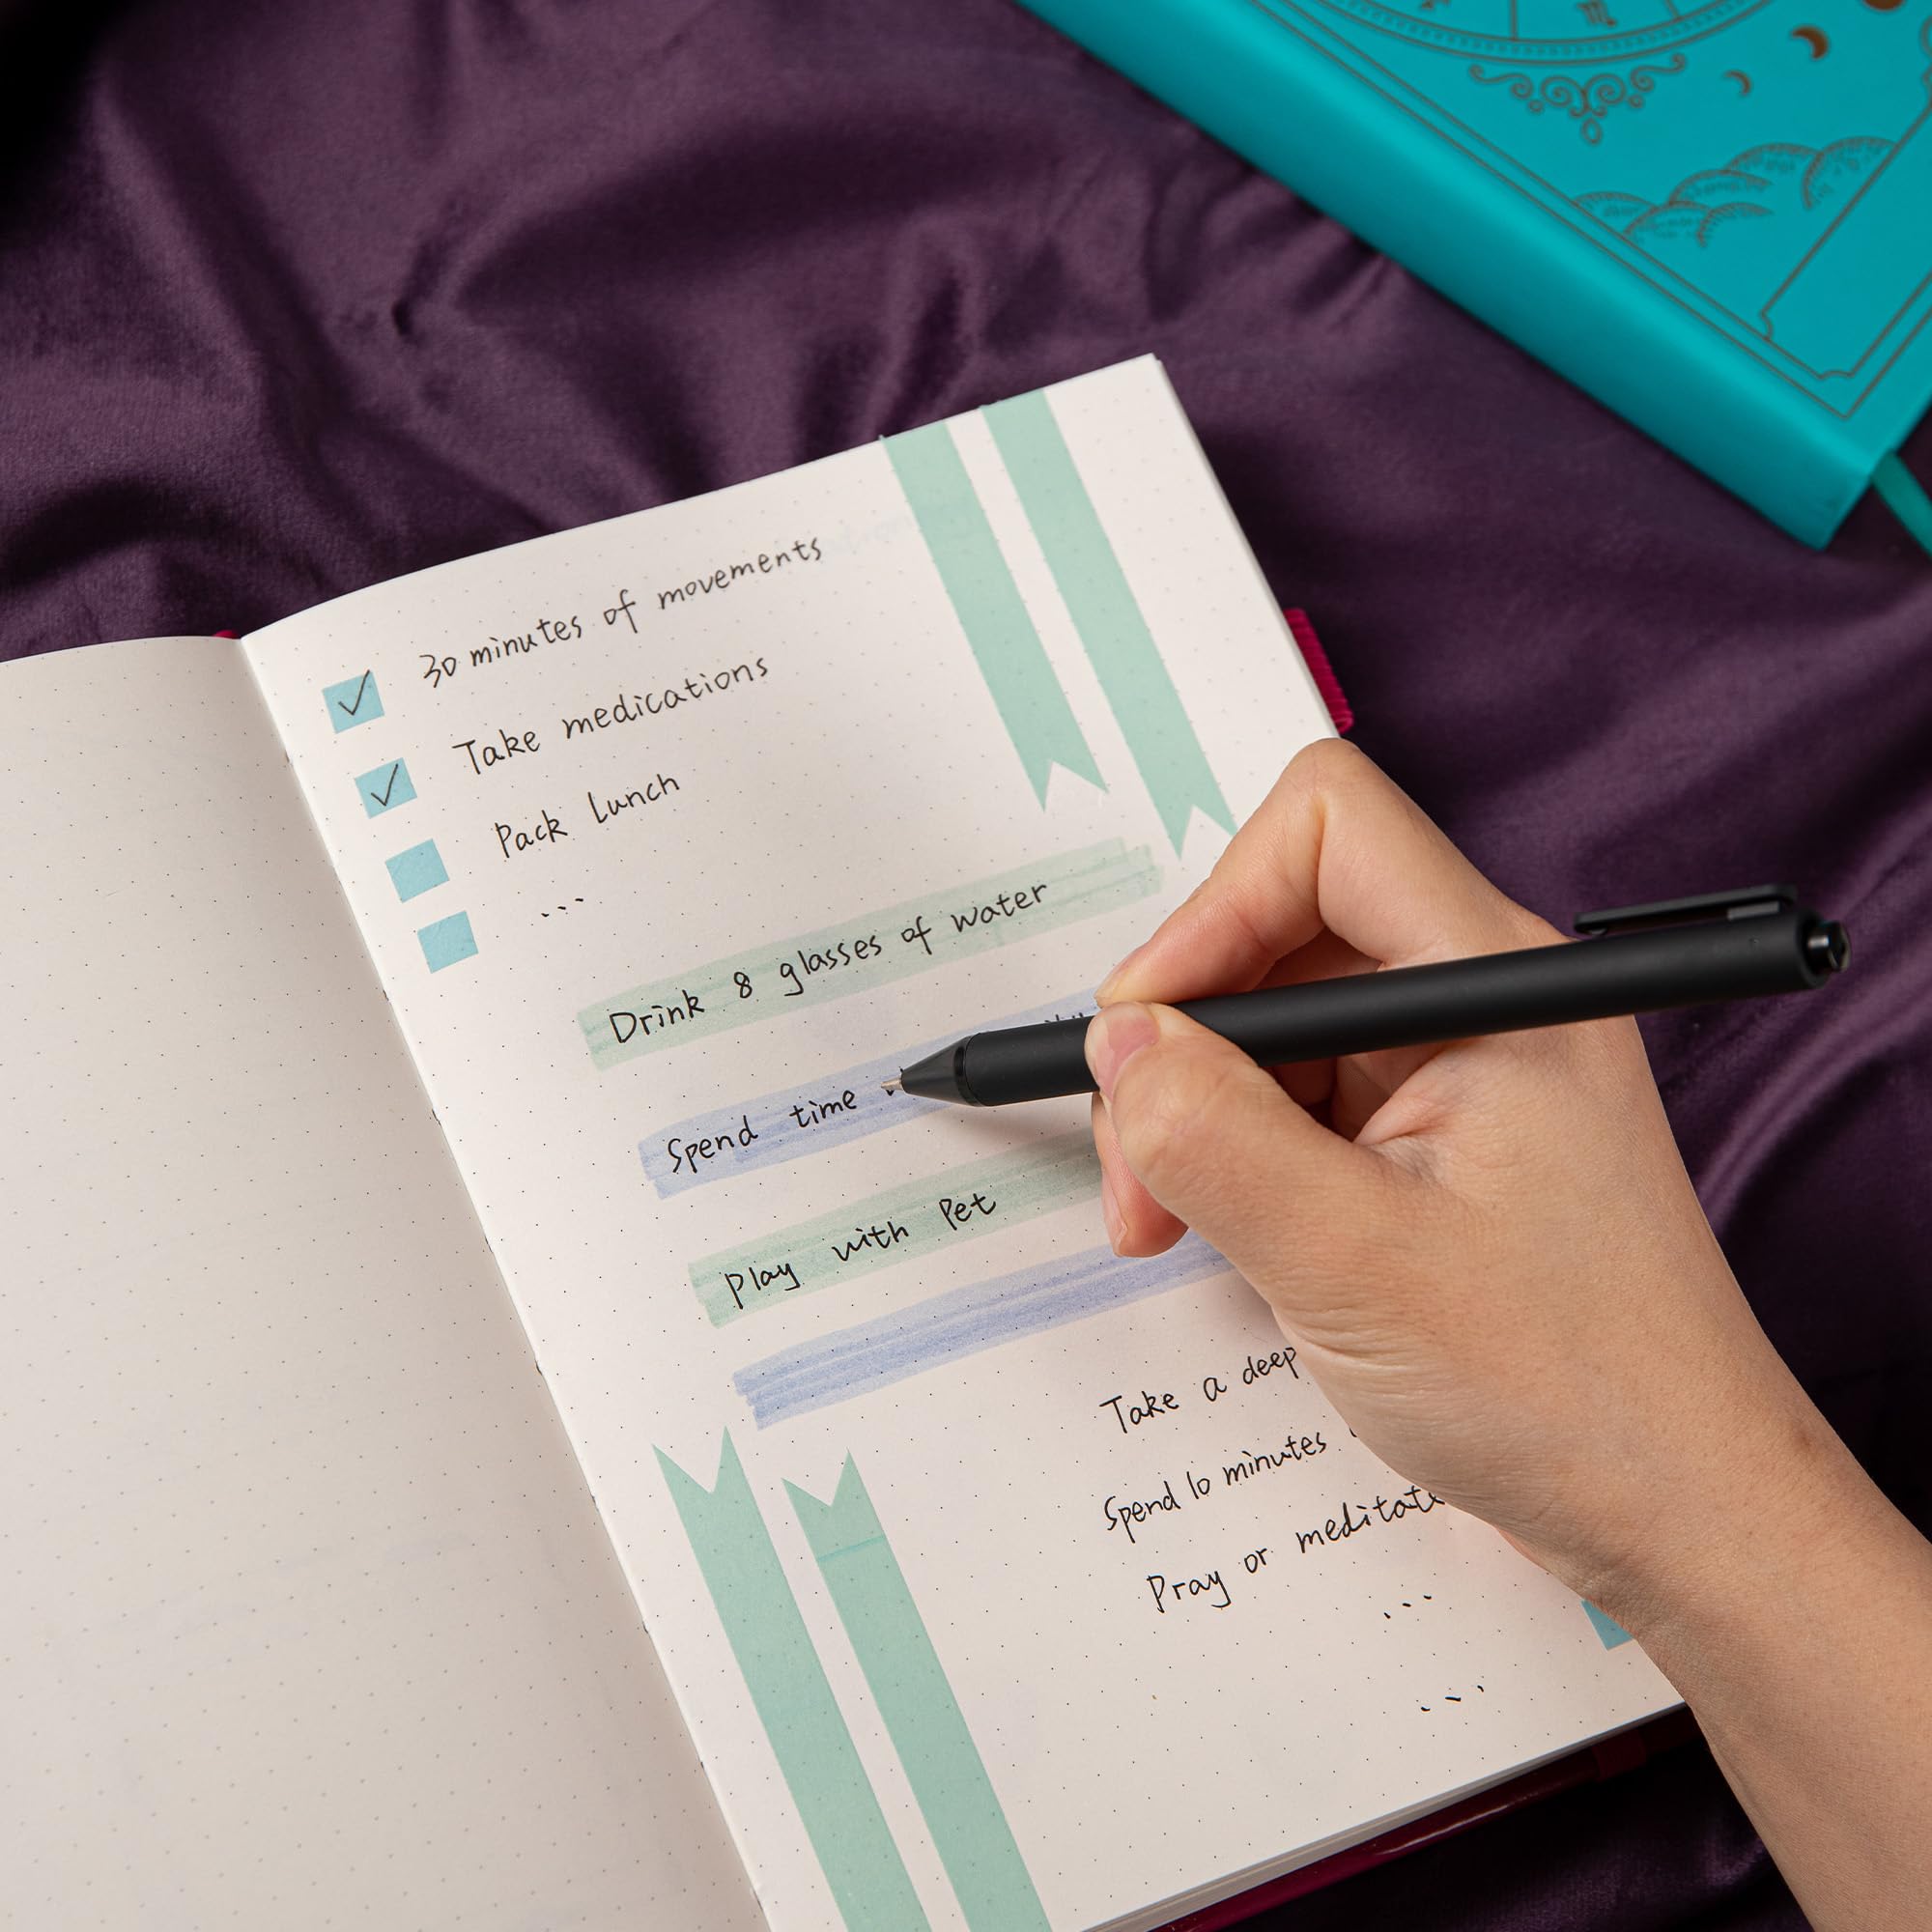 30 minutes of movements
Take medications
Pack Lunch
...
Drink 8 glasses of water
Spend time
Play with Pet
Take a deep
Spend 10 minutes
Pray or meditate
...
...